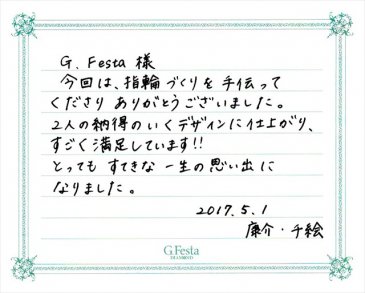 G. Festa 様
今回は、指輪づくりを手伝って
くださり ありがとうございました。
2人の納得のいくデザインに仕上がり、
すごく満足しています!!
とっても すてきな 一生の思い出に
なりました。
2017. 5. 1
康介・千絵
G.Festa
DIAMOND